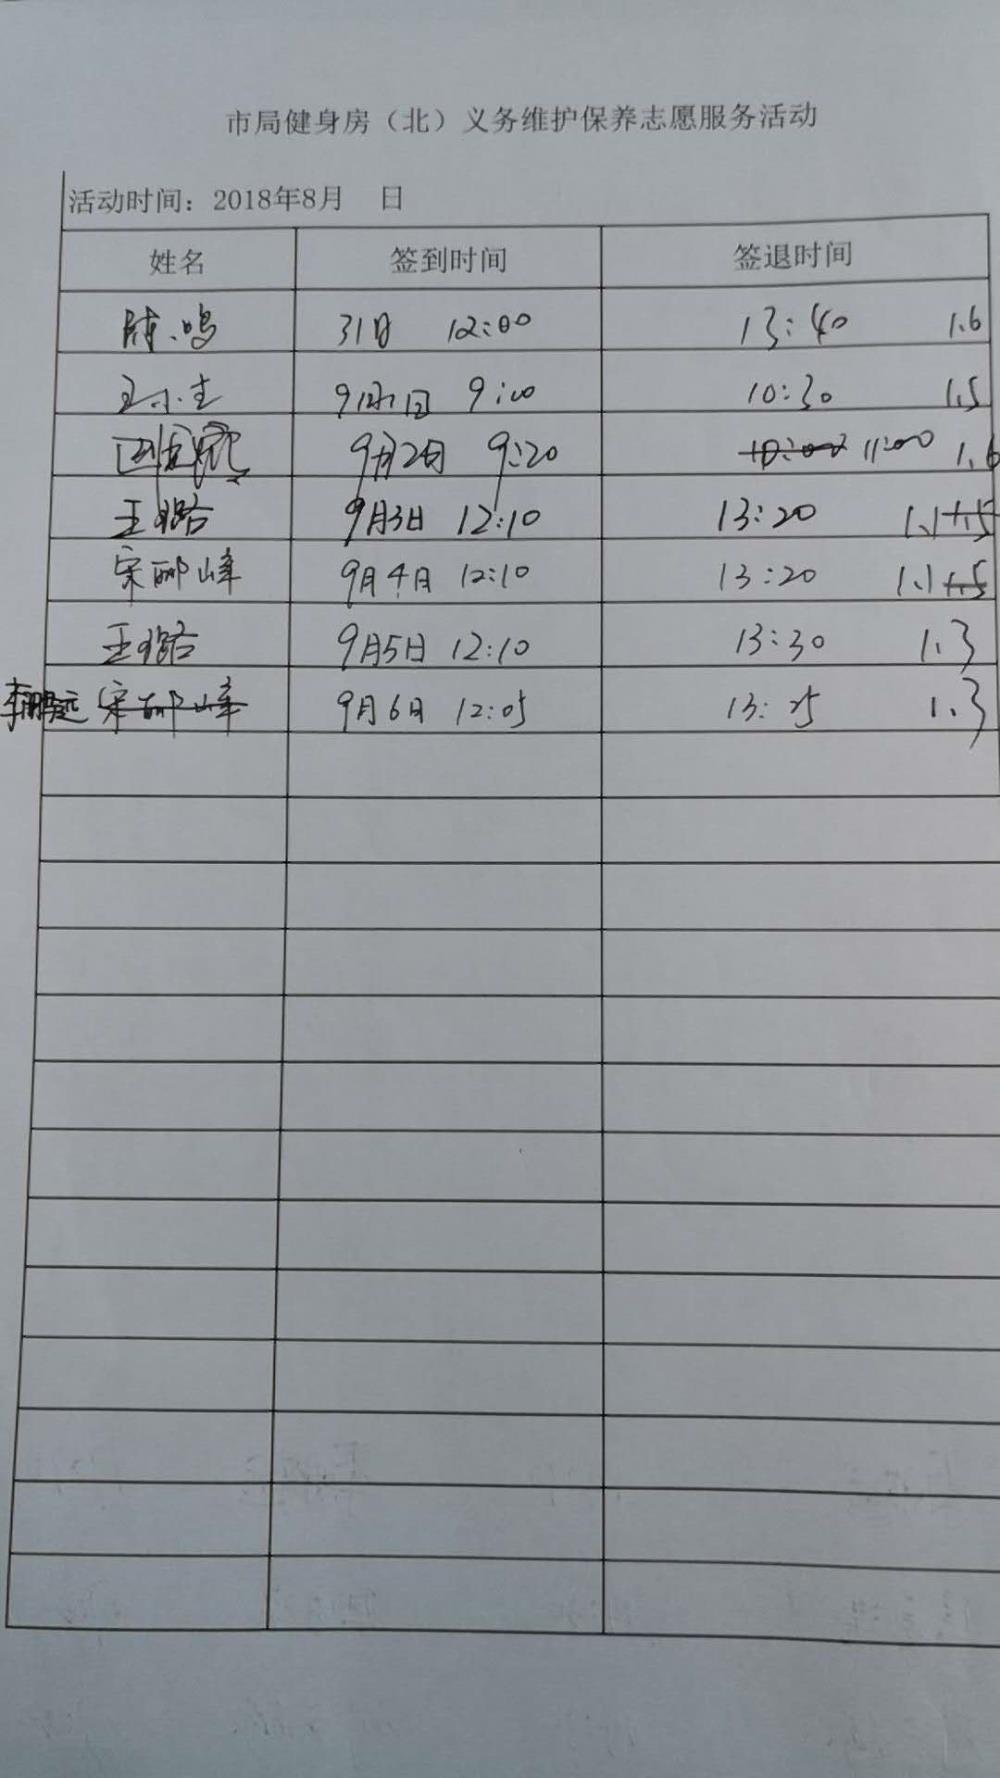 市局健身房（北）义务维护保养志愿服务活动
活动时间：2018年8月 日
姓名 签到时间 签退时间
陈鸣 31日 12:00 13:40 1.6
9月1日 9:00 10:30 1.5
9月2日 9:20 10:00 11:00 1.6
王璐 9月3日 12:10 13:20 1.1 1.5
宋郦峰 9月4日 12:10 13:20 1.1 1.5
王璐 9月5日 12:10 13:30 1.3
李鹏远 宋郦峰 9月6日 12:05 13:25 1.3